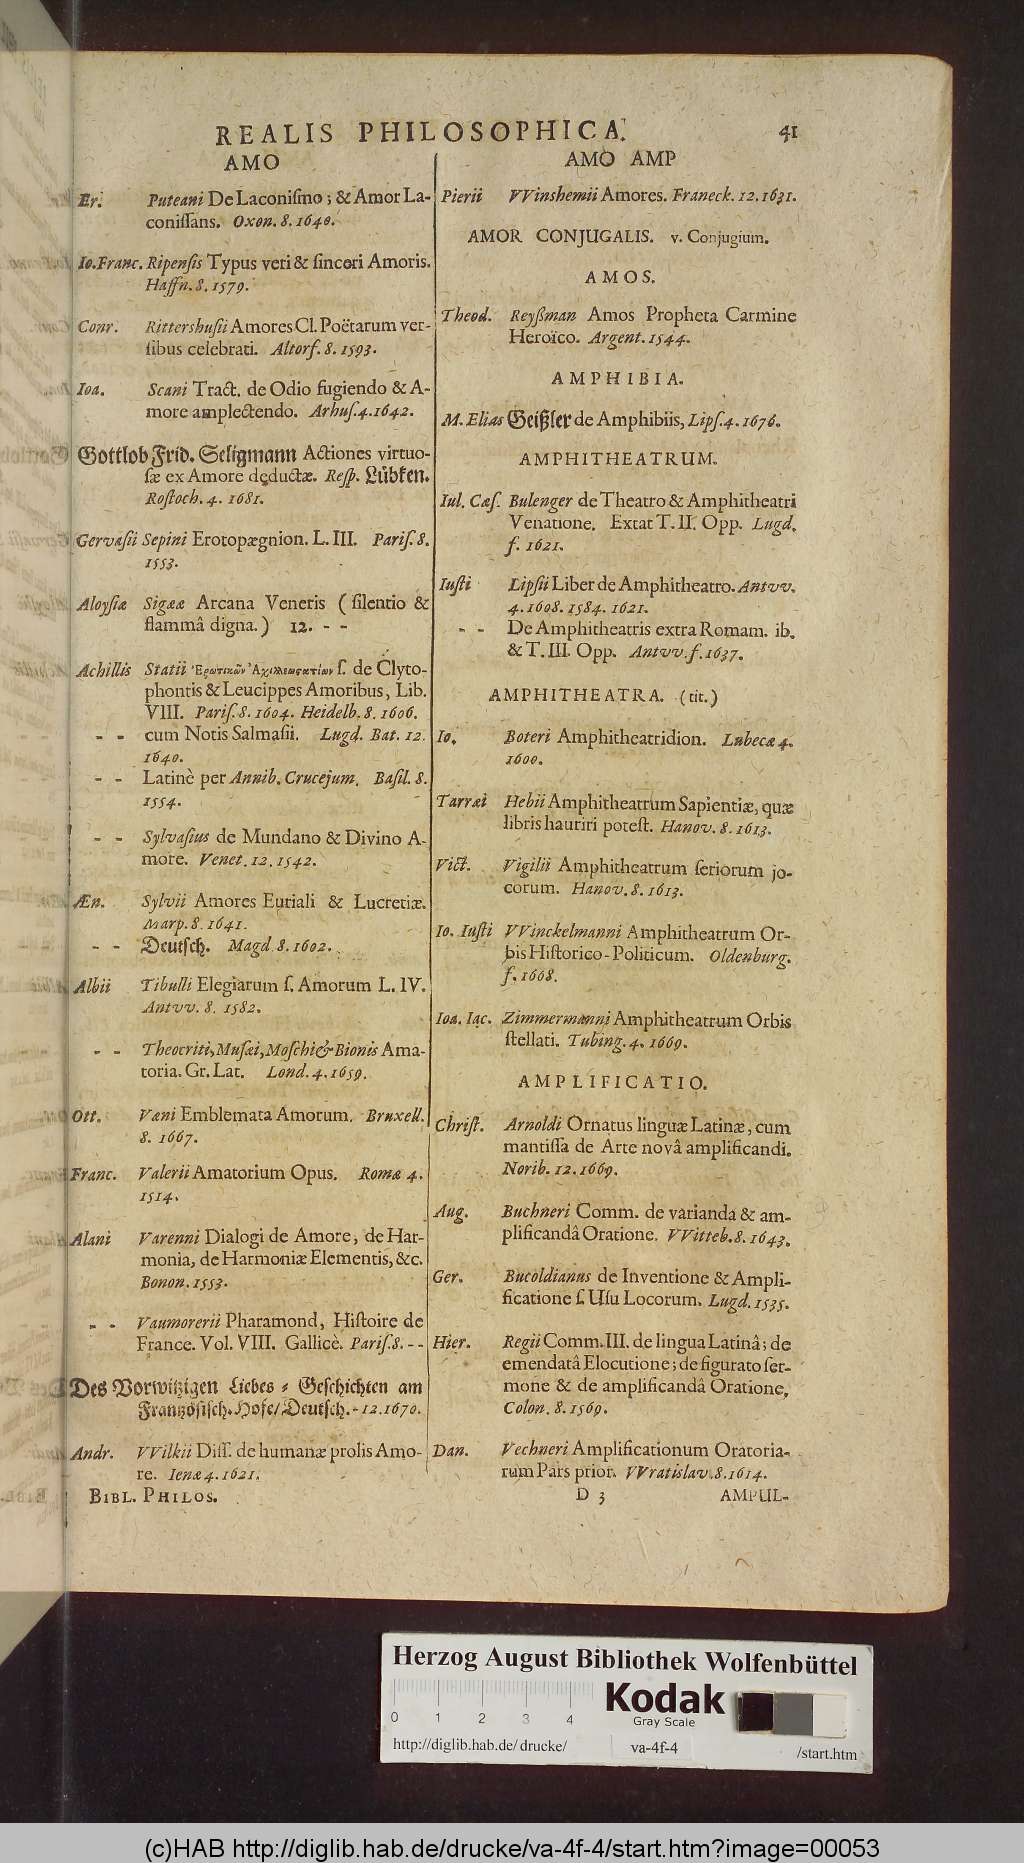 REALIS PHILOSOPHICA. 41
AMO
Er. Puteani De Laconiſmo; & Amor La-
coniſſans. Oxon. 8. 1640.
Io.Franc. Ripenſis Typus veri & ſinceri Amoris.
Haffn. 8. 1579.
Conr. Rittershuſii Amores Cl. Poëtarum ver-
ſibus celebrati. Altorf. 8. 1593.
Ioa. Scani Tract. de Odio fugiendo & A-
more amplectendo. Arhuſ. 4. 1642.
Gottlob Frid. Seligmann Actiones virtuo-
ſæ ex Amore deductæ. Reſp. Lübken.
Roſtoch. 4. 1681.
Gervaſii Sepini Erotopægnion. L. III. Pariſ. 8.
1553.
Aloyſiæ Sigææ Arcana Veneris (ſilentio &
flammâ digna.) 12. - -
Achillis Statii Ἐρωτικῶν s. de Clyto-
phontis & Leucippes Amoribus, Lib.
VIII. Pariſ. 8. 1604. Heidelb. 8. 1606.
- - cum Notis Salmaſii. Lugd. Bat. 12.
1640.
- - Latinè per Annib. Crucejum. Baſil. 8.
1554.
- - Sylvaſius de Mundano & Divino A-
more. Venet. 12. 1542.
Æn. Sylvii Amores Euriali & Lucretiæ.
Marp. 8. 1641.
- - Deutſch. Magd. 8. 1602.
Albii Tibulli Elegiarum ſ. Amorum L. IV.
Antvv. 8. 1582.
- - Theocriti, Muſæi, Moſchi & Bionis Ama-
toria. Gr. Lat. Lond. 4. 1659.
Ott. Væni Emblemata Amorum. Bruxell.
8. 1667.
Franc. Valerii Amatorium Opus. Romæ 4.
1514.
Alani Varenni Dialogi de Amore, de Har-
monia, de Harmoniæ Elementis, &c.
Bonon. 1553.
- - Vaumorerii Pharamond, Hiſtoire de
France. Vol. VIII. Gallicè. Pariſ. 8. - -
Des Vorwitzigen Liebes-Geſchichten am
Frantzöſiſch. Hofe/ Deutſch. - 12. 1670.
Andr. VVilkii Diſſ. de humanæ prolis Amo-
re. Ienæ 4. 1621.
BIBL. PHILOS.
AMO AMP
Pierii VVinshemii Amores. Franeck. 12. 1631.
AMOR CONJUGALIS. v. Conjugium.
AMOS.
Theod. Reyßman Amos Propheta Carmine
Heroïco. Argent. 1544.
AMPHIBIA.
M. Elias Geißler de Amphibiis, Lipſ. 4. 1676.
AMPHITHEATRUM.
Iul. Cæſ. Bulenger de Theatro & Amphitheatri
Venatione. Extat T. II. Opp. Lugd.
f. 1621.
Iuſti Lipſii Liber de Amphitheatro. Antvv.
4. 1608. 1584. 1621.
- - De Amphitheatris extra Romam. ib.
& T. III. Opp. Antvv. f. 1637.
AMPHITHEATRA. (tit.)
Io. Boteri Amphitheatridion. Lubecæ 4.
1600.
Tarræi Hebii Amphitheatrum Sapientiæ, quæ
libris hauriri poteſt. Hanov. 8. 1613.
Vict. Vigilii Amphitheatrum ſeriorum jo-
corum. Hanov. 8. 1613.
Io. Iuſti VVinckelmanni Amphitheatrum Or-
bis Hiſtorico-Politicum. Oldenburg.
f. 1668.
Ioa. Iac. Zimmermanni Amphitheatrum Orbis
ſtellati. Tubing. 4. 1669.
AMPLIFICATIO.
Chriſt. Arnoldi Ornatus linguæ Latinæ, cum
mantiſſa de Arte novâ amplificandi.
Norib. 12. 1669.
Aug. Buchneri Comm. de varianda & am-
plificandâ Oratione. VVitteb. 8. 1643.
Ger. Bucoldianus de Inventione & Ampli-
ficatione ſ. Uſu Locorum. Lugd. 1535.
Hier. Regii Comm. III. de lingua Latinâ; de
emendatâ Elocutione; de figurato ſer-
mone & de amplificandâ Oratione.
Colon. 8. 1569.
Dan. Vechneri Amplificationum Oratoria-
rum Pars prior. VVratislav. 8. 1614.
D 3 AMPUL-
Herzog August Bibliothek Wolfenbüttel
0 1 2 3 4
Kodak
Gray Scale
http://diglib.hab.de/drucke/ va-4f-4 /start.htm
(c)HAB http://diglib.hab.de/drucke/va-4f-4/start.htm?image=00053